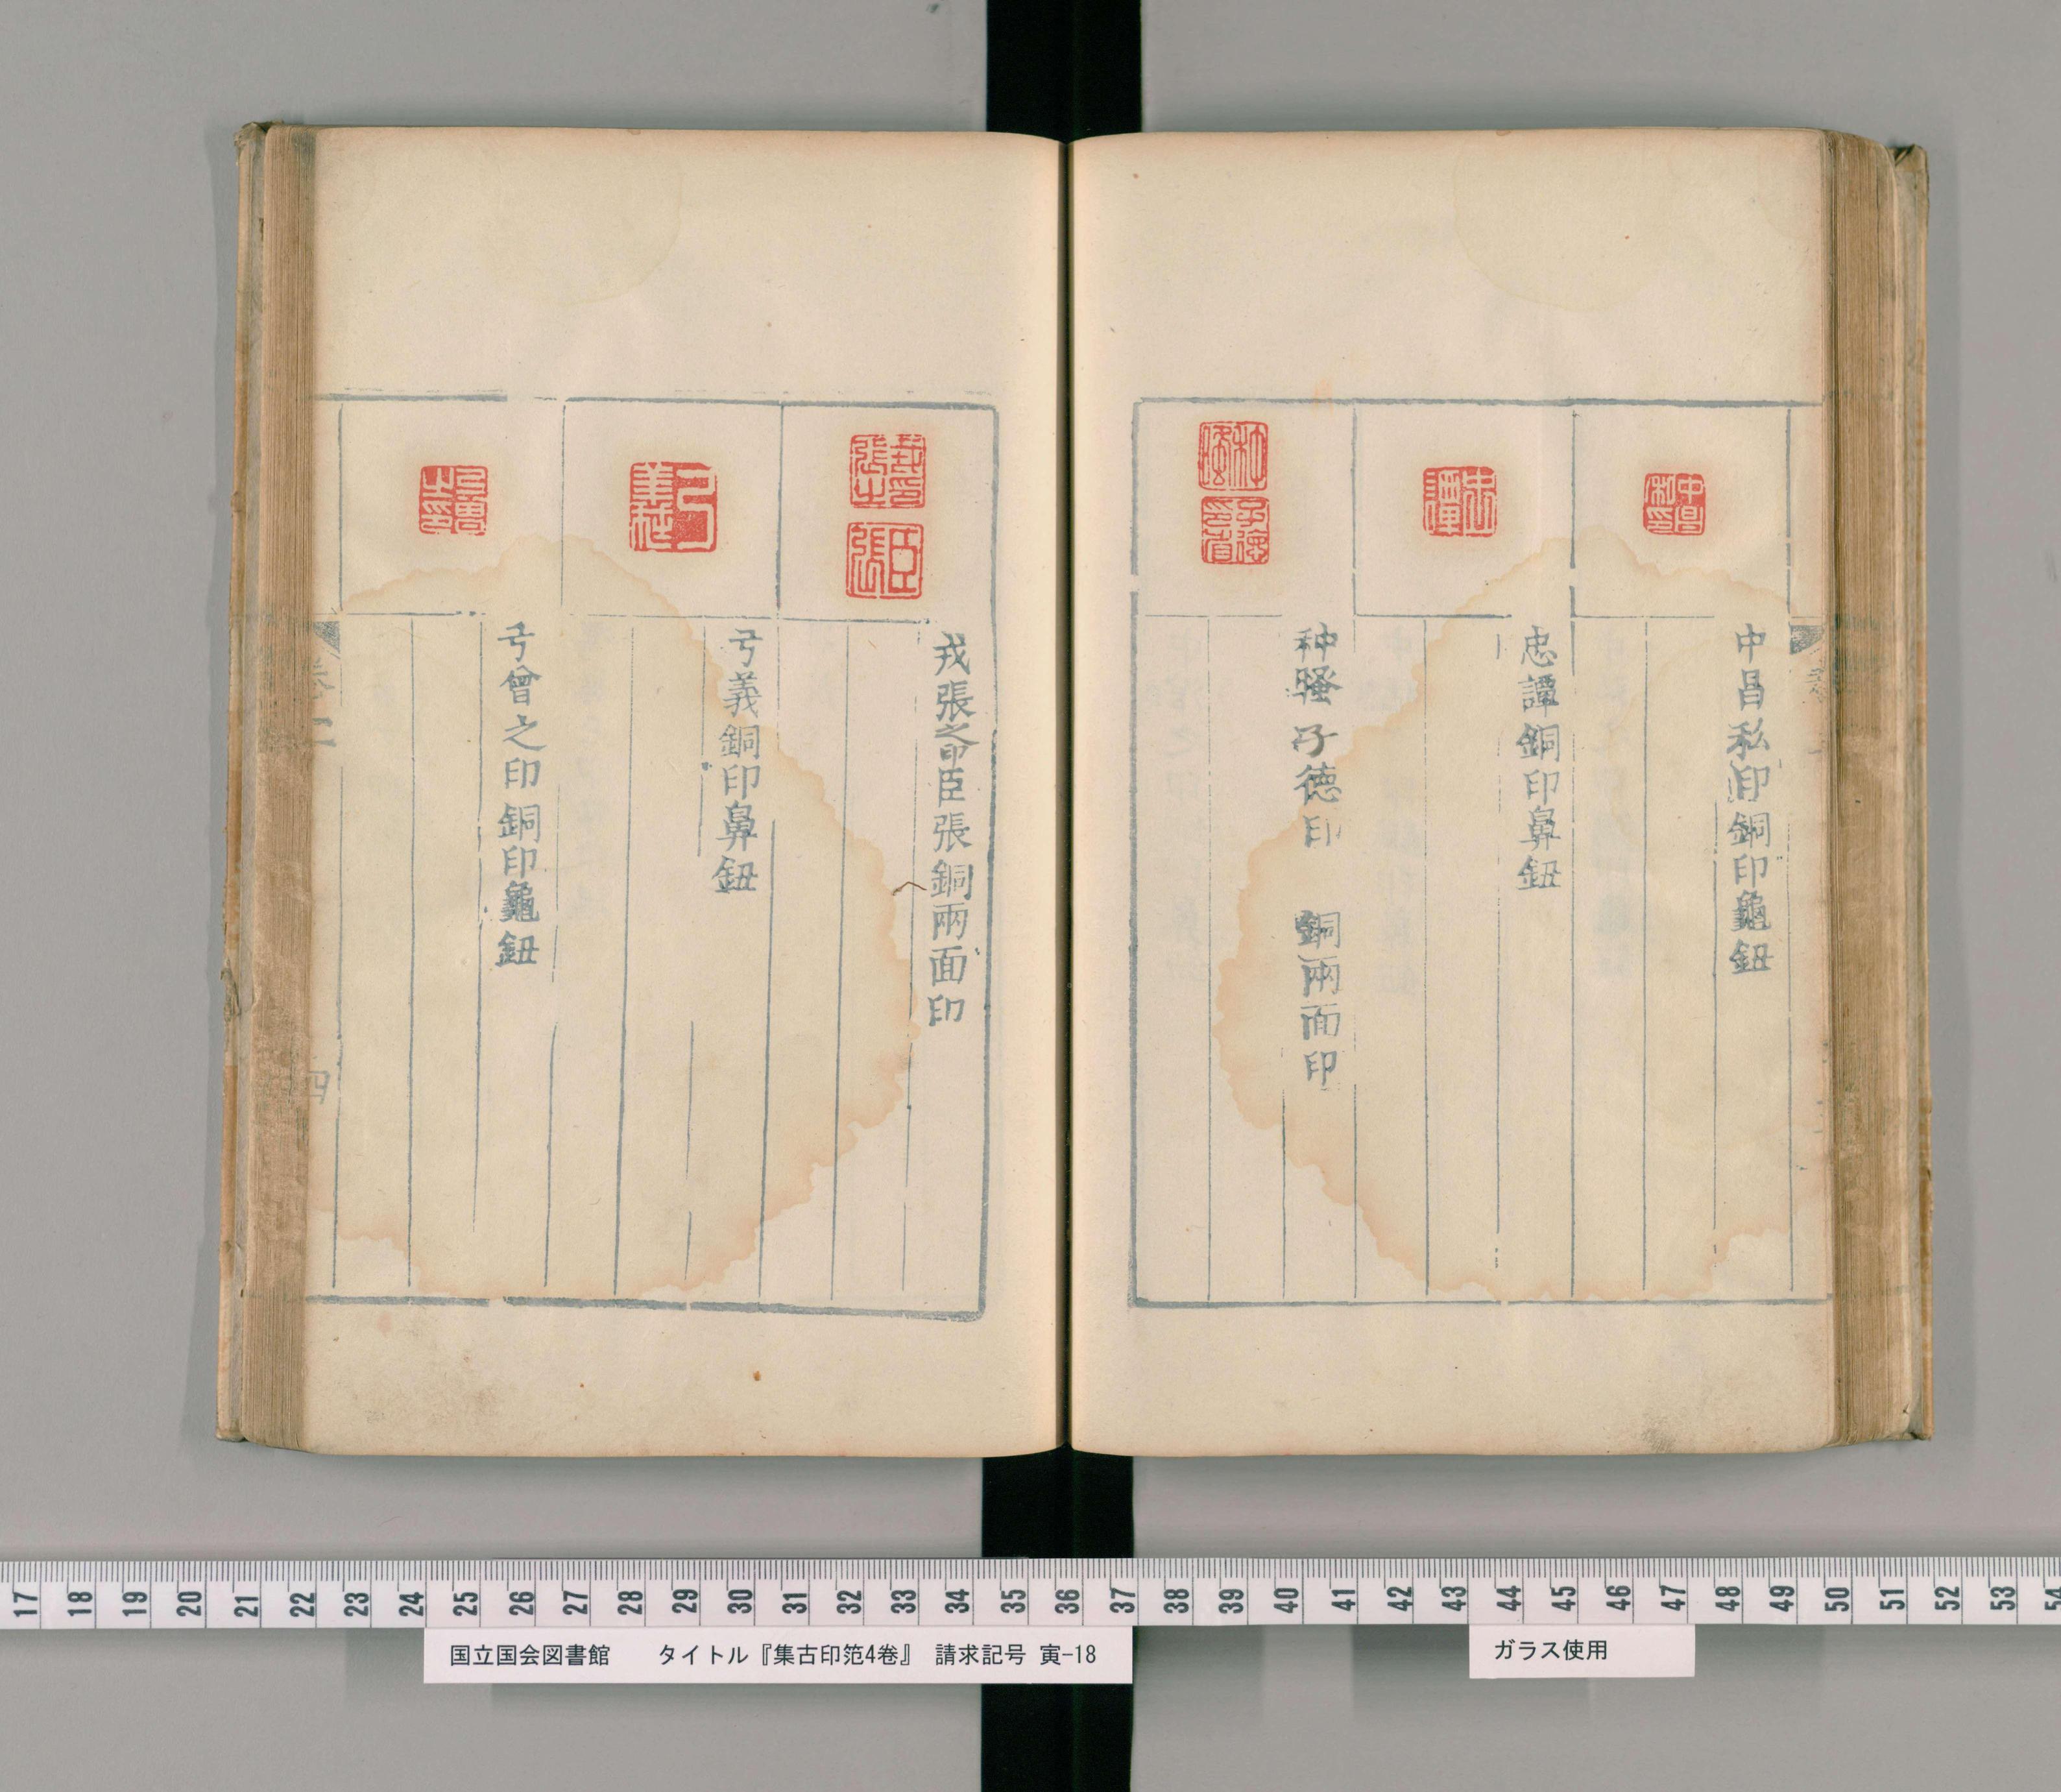 中昌私印銅印龜鈕
忠譚銅印鼻鈕
种騷子德印 銅兩面印
戎張之印臣張銅兩面印
弓義銅印鼻鈕
弓曾之印銅印龜鈕
卷二
四
17 18 19 20 21 22 23 24 25 26 27 28 29 30 31 32 33 34 35 36 37 38 39 40 41 42 43 44 45 46 47 48 49 50 51 52 53 54
国立国会図書館 タイトル『集古印笵4巻』 請求記号 寅-18
ガラス使用